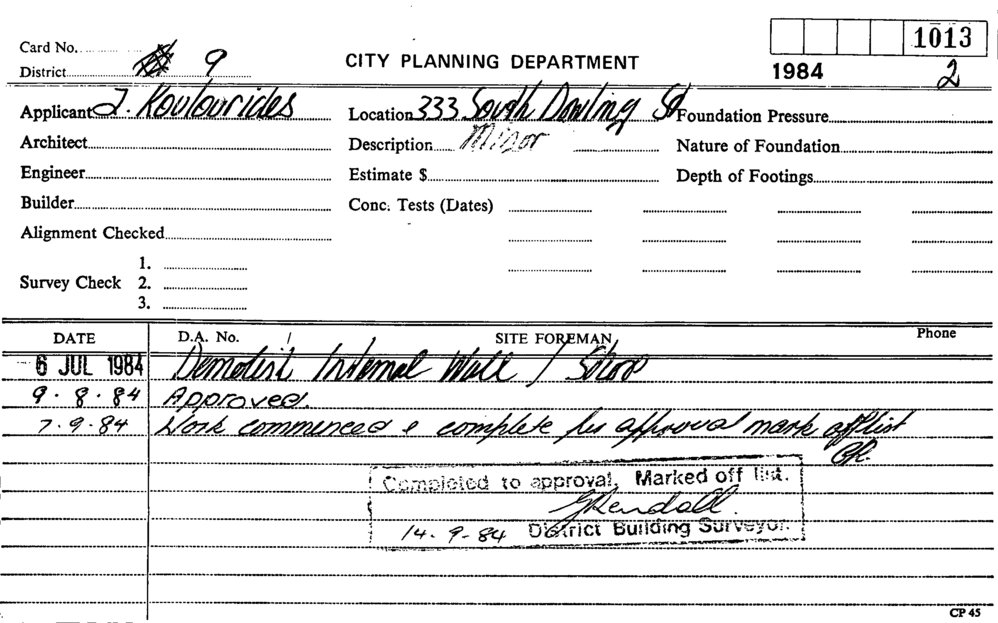 1013
Card No.
District 9
CITY PLANNING DEPARTMENT
1984 2
Applicant J. Koulourides
Location 333 South Dowling St
Foundation Pressure
Architect
Description Minor
Nature of Foundation
Engineer
Estimate $
Depth of Footings
Builder
Conc. Tests (Dates)
Alignment Checked
Survey Check
1.
2.
3.
DATE D.A. No. / SITE FOREMAN Phone
6 JUL 1984 Demolish Internal Wall / Shop
9.8.84 Approved.
7.9.84 Work commenced & complete per approval mark off list
Completed to approval, Marked off list.
GKendall.
14.9.84 District Building Surveyor.
CP 45